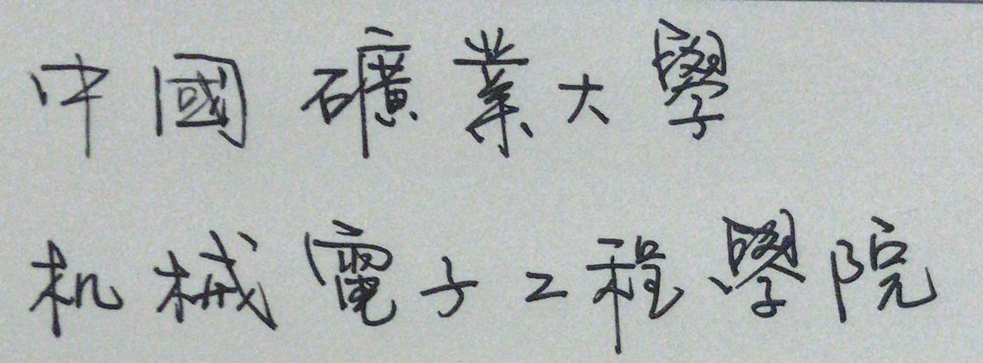 中國礦業大學
机械電子工程學院